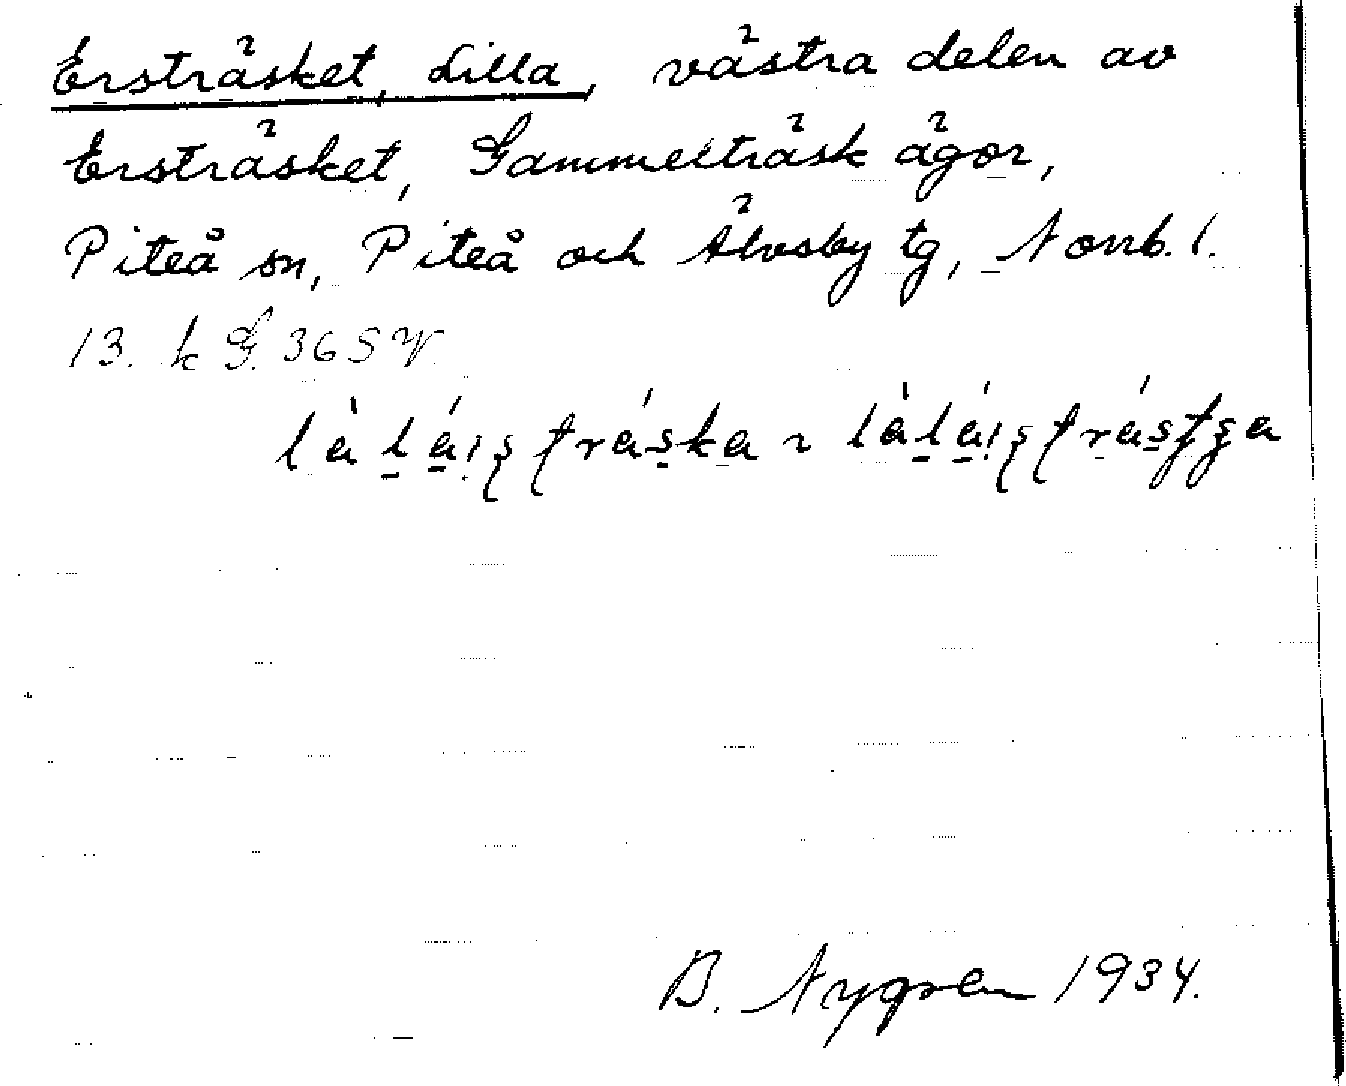 Ersträsket, Lilla, västra delen av
Ersträsket, Gammelträsk ägor,
Piteå sn, Piteå och Älvsby tg, Norrb. l.
13. k G. 36 S V.
B. Nygren 1934.